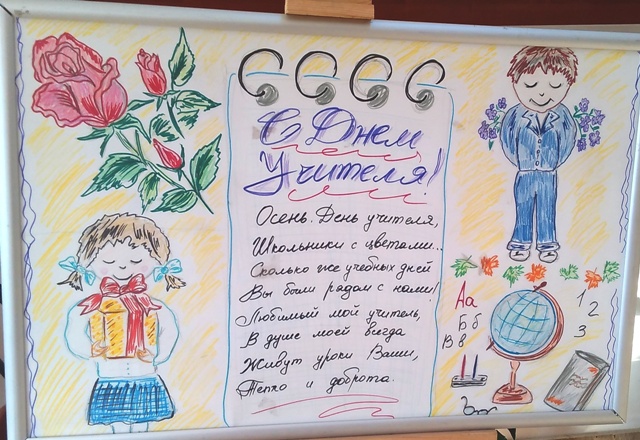 С Днем
Учителя!
Осень. День учителя,
Школьники с цветами...
Сколько же учебных дней
Вы были рядом с нами!
Любимый мой учитель,
В душе моей всегда
Живут уроки Ваши,
Тепло и доброта.
Аа
Бб
Вв
1
2
3